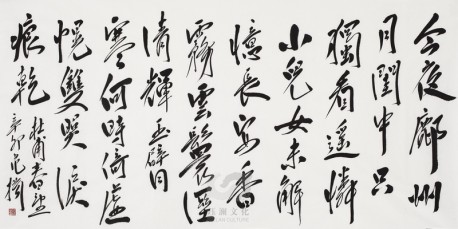 今夜鄜州
月閨中只
獨看遙憐
小兒女未解
憶長安香
霧雲鬟濕
清輝玉臂
寒何時倚虛
幌雙照淚
痕乾 杜甫春望
辛卯
文化